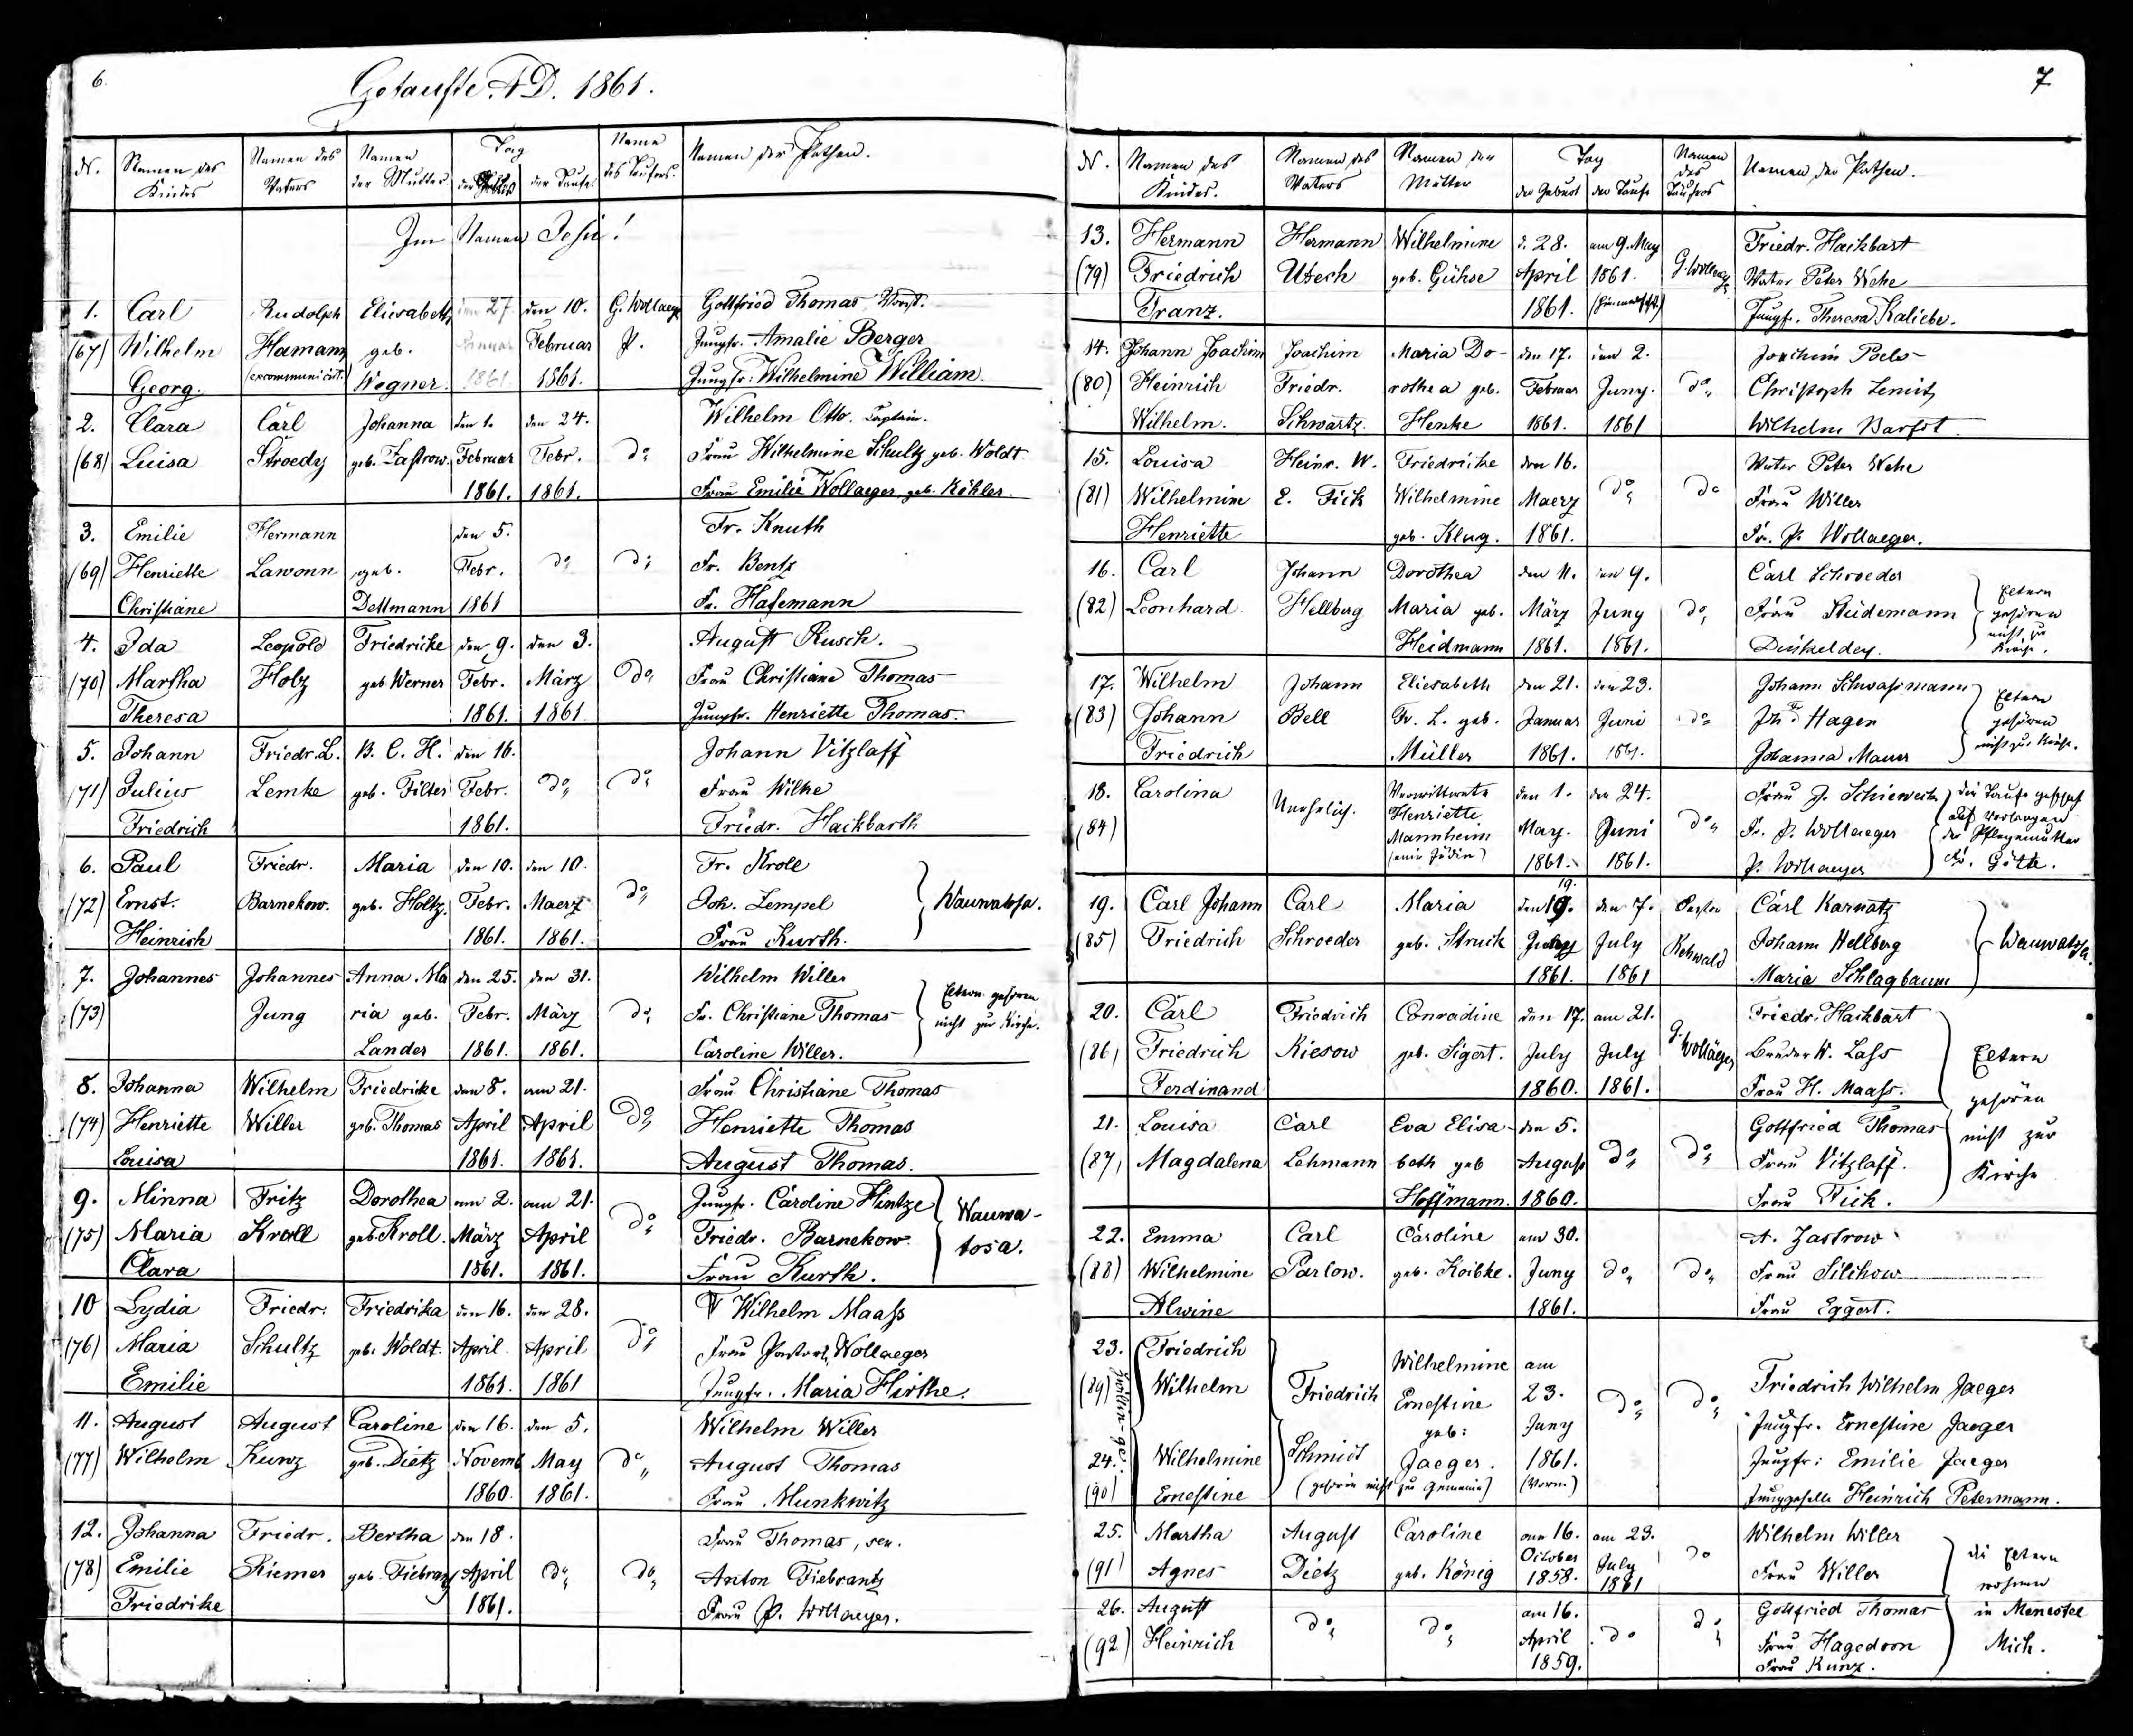 6.
Getaufte A.D. 1861.
N.
Namen des Kindes
Namen des Vaters
Namen der Mutter
Tag
der Geburt
der Taufe
Name des Täufers.
Namen der Pathen.
Im Namen Jesu!
1. Carl Rudolph Elisabeth den 27. den 10. G. Wollaeger Gottfried Thomas Vorst.
(67) Wilhelm Hamann geb. Januar Februar P. Jungfr. Amalie Berger
Georg. (excommunicirt.) Wegner. 1861. 1861. Jungfr: Wilhelmine William.
2. Clara Carl Johanna den 1. den 24. Wilhelm Otto.
(68) Luisa Stroedy geb. Zastrow. Februar Febr. do. Frau Wilhelmine Schultz geb. Woldt.
1861. 1861. Frau Emilie Wollaeger geb. Köhler.
3. Emilie Hermann den 5. Fr. Knuth
(69) Henriette Lawonn geb. Febr. do do Fr. Bentz
Christiane Dettmann 1861 Fr. Hasemann
4. Ida Leopold Friedricke den 9. den 3. August Rusch.
(70) Martha Holz geb Werner Febr. März do Frau Christiane Thomas
Theresa 1861. 1861 Jungfr. Henriette Thomas.
5. Johann Friedr. L. B. C. H. den 16. Johann Vitzlaff
(71) Julius Lemke geb. Filter Febr. do do Frau Wilke
Friedrich 1861. Friedr. Hackbarth
6. Paul Friedr. Maria den 10. den 10. Fr. Kroll
(72) Ernst. Barnekow. geb. Holtz. Febr. Maerz do Joh. Lempel Wauwatosa.
Heinrich 1861. 1861. Frau Kurth.
7. Johannes Johannes Anna Ma den 25. den 31. Wilhelm Willer
(73) Jung ria geb. Febr. März do Fr. Christiane Thomas Eltern gehören nicht zur Kirche.
Lander 1861. 1861. Caroline Willer.
8. Johanna Wilhelm Friedricke den 8. am 21. Frau Christiane Thomas
(74) Henriette Willer geb. Thomas April April do Henriette Thomas
Louisa 1861. 1861. August Thomas.
9. Minna Fritz Dorothea am 2. am 21. Jungfr. Caroline Hintze Wauwa-
(75) Maria Kroll geb. Kroll. März April do Friedr. Barnekow. tosa.
Clara 1861. 1861. Frau Kurth.
10 Lydia Friedr. Friedrika den 16. den 28. Wilhelm Maass
(76) Maria Schultz geb. Woldt. April. April do Frau Pastor Wollaeger
Emilie 1861. 1861 Jungfr. Maria Hirthe.
11. August August Caroline den 16. den 5. Wilhelm Willer
(77) Wilhelm Kunz geb. Dietz Novemb May do August Thomas
1860. 1861. Frau Munkwitz
12. Johanna Friedr. Bertha den 18. Frau Thomas, sen.
(78) Emilie Riemer geb. Fiebrantz April do do Anton Fiebrantz
Friedrike 1861. Frau P. Wollaeger.
7
N.
Namen des Kindes.
Namen des Vaters
Namen der Mutter
Tag
der Geburt
der Taufe
Namen des Täufers
Namen der Pathen.
13. Hermann Hermann Wilhelmine d. 28. am 9. May Friedr. Hackbart
(79) Friedrich Utech geb. Gühse April 1861. G. Wollaeger Vater Peter Wehe
Franz. 1861. (Himmelfhrt.) Jungf. Theresa Kaliebe.
14. Johann Joachim Joachim Maria Do- den 17. den 2. Joachim Pals
(80) Heinrich Friedr. rothea geb. Februar Juny. do Christoph Lenitz
Wilhelm. Schwartz. Henke 1861. 1861 Wilhelm Barfst.
15. Louisa Heinr. W. Friedricke den 16. Vater Peter Wehe
(81) Wilhelmine E. Fick Wilhelmine Maerz do do Frau Willer
Henriette geb. Klug. 1861. Fr. P. Wollaeger.
16. Carl Johann Dorothea den 11. den 9. Carl Schroeder
(82) Leonhard Hellberg Maria geb. März Juny do Frau Stüdemann Eltern gehören nicht zu Kirche.
Heidmann 1861. 1861. Dinkeldey.
17. Wilhelm Johann Eliesabeth den 21. den 23. Johann Schwassmann
(83) Johann Bell Fr. L. geb. Januar Juni do Joh. Hagen Eltern gehören nicht zur Kirche.
Friedrich Müller 1861. 1861. Johanna Mauer
18. Carolina Unehelich. Verwittwete den 1. den 24. Frau P. Schieweck die Taufe geschah
(84) Henriette Mannheim May. Juni do Fr. P. Wollaeger auf Verlangen der Pflegemutter
(eine Jüdin) 1861. 1861. P. Wollaeger Fr. Göth.
19. Carl Johann Carl Maria den 19. 19. den 7. Pastor Carl Karnatz
(85) Friedrich Schroeder geb. Struck Juny July Rehwald Johann Hellberg Wauwatosa.
1861. 1861 Maria Schlagbaum
20. Carl Friedrich Conradine den 17. am 21. Friedr. Hackbart
(86) Friedrich Kiesow geb. Sigert. July July G. Wollaeger Bruder W. Lass Eltern
Ferdinand 1860. 1861. Frau H. Maass. gehören
21. Louisa Carl Eva Elisa- den 5. Gottfried Thomas nicht zur
(87) Magdalena Lehmann beth geb August do do Frau Vitzlaff. Kirche
Hoffmann. 1860. Frau Fick.
22. Emma Carl Caroline am 30. A. Zastrow
(88) Wilhelmine Parlow. geb. Koibke. Juny do do Frau Silchow
Alwine 1861. Frau Eggert.
23. Friedrich Wilhelmine am
(89) Wilhelm Friedrich Ernestine 23. do do Friedrich Wilhelm Jaeger
geb: Juny Jungfr. Ernestine Jaeger
24. Wilhelmine Schmidt Jaeger. 1861. Jungfr: Emilie Jaeger
(90) Ernestine (gehören nicht zu Gemeine) (Vorm.) Junggeselle Heinrich Petermann.
25. Martha August Caroline am 16. am 23. Wilhelm Willer
(91) Agnes Dietz geb. König October 1858. July 1861 do Frau Willer die Eltern wohnen
26. August am 16. Gottfried Thomas in Menestee
(92) Heinrich do do April do do Frau Hagedorn Mich.
1859. Frau Kunz.